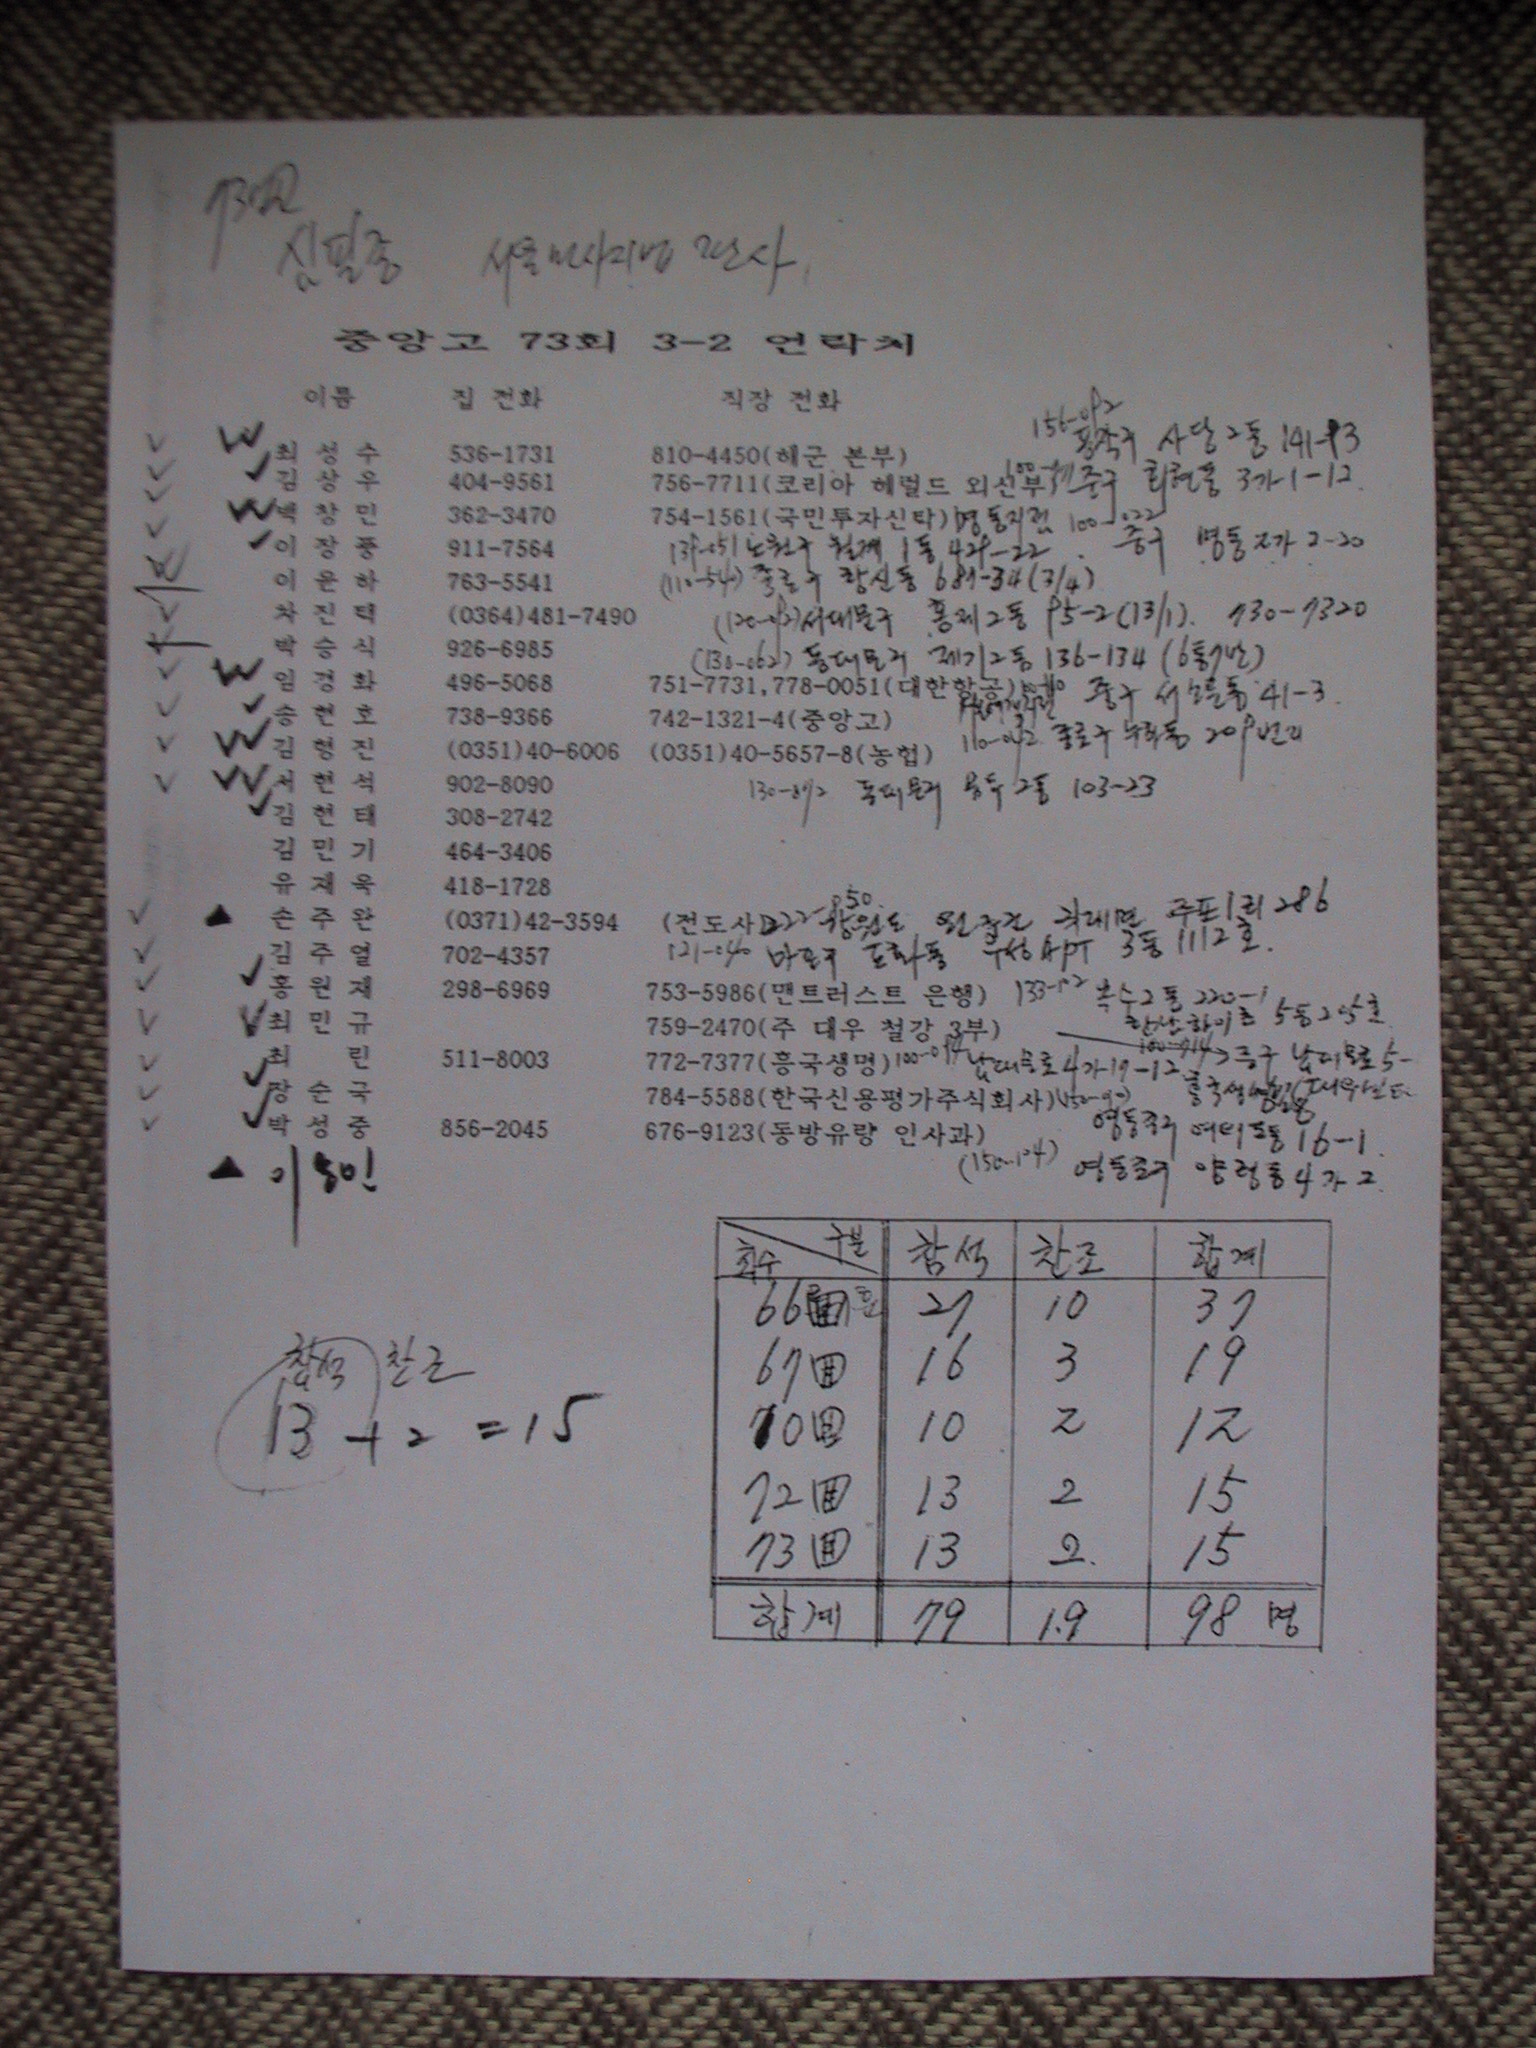 73회
심필종 서울민사지법 판사
중앙고 73회 3-2 연락처
이름 집 전화 직장 전화
최성수 536-1731 810-4450(해군 본부) 동작구 사당2동 141-93
김상우 404-9561 756-7711(코리아 헤럴드 외신부) 중구 회현동 3가 1-12
백창민 362-3470 754-1561(국민투자신탁) 명동지점 100-022
이장풍 911-7564 139-051 노원구 월계1동 429-22 중구 명동 2가 2-20
이윤하 763-5541 (110-540) 종로구 창신동 681-34(3/4)
차진택 (0364)481-7490 (120-092) 서대문구 홍제2동 95-2(13/1). 730-7320
박승식 926-6985 (130-062) 동대문구 제기2동 136-134 (6통7반)
임경화 496-5068 751-7731,778-0051(대한항공) 중구 서소문동 41-3.
송현호 738-9366 742-1321-4(중앙고)
김형진 (0351)40-6006 (0351)40-5657-8(농협) 110-042 종로구 누하동 209번지
서현석 902-8090 130-072 동대문구 용두2동 103-23
김현태 308-2742
김민기 464-3406
유재욱 418-1728
손주완 (0371)42-3594 (전도사) 강원도 귀래면 주포1리 286
김주열 702-4357 121-040 마포구 도화동 우성APT 3동 1112호.
홍원재 298-6969 753-5986(맨트러스트 은행) 옥수2동 220-1
최민규 759-2470(주 대우 철강 3부) 5동 205호
최린 511-8003 772-7377(흥국생명) 남대문로 4가 17-12 중구 남대문로 5-
장순국 784-5588(한국신용평가주식회사)
박성중 856-2045 676-9123(동방유량 인사과) 영등포구 여의도동 16-1.
(150-104) 영등포구 양평동 4가 2.
회수 구분 참석 찬조 합계
66회 27 10 37
67회 16 3 19
70회 10 2 12
72회 13 2 15
73회 13 2. 15
합계 79 19 98 명
참석 찬조
13 + 2 = 15